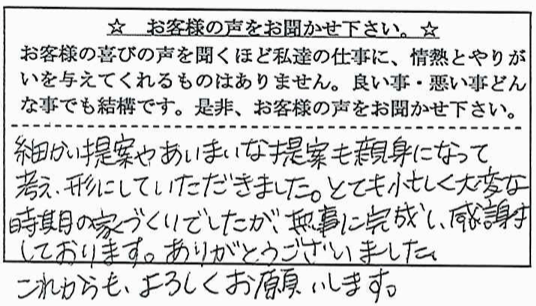 ☆ お客様の声をお聞かせ下さい。☆
お客様の喜びの声を聞くほど私達の仕事に、情熱とやりが
いを与えてくれるものはありません。良い事・悪い事どん
な事でも結構です。是非、お客様の声をお聞かせ下さい。
細かい提案やあいまいな提案も親身になって
考え、形にしていただきました。とても忙しく大変な
時期の家づくりでしたが、無事に完成し、感謝
しております。ありがとうございました。
これからも、よろしくお願いします。